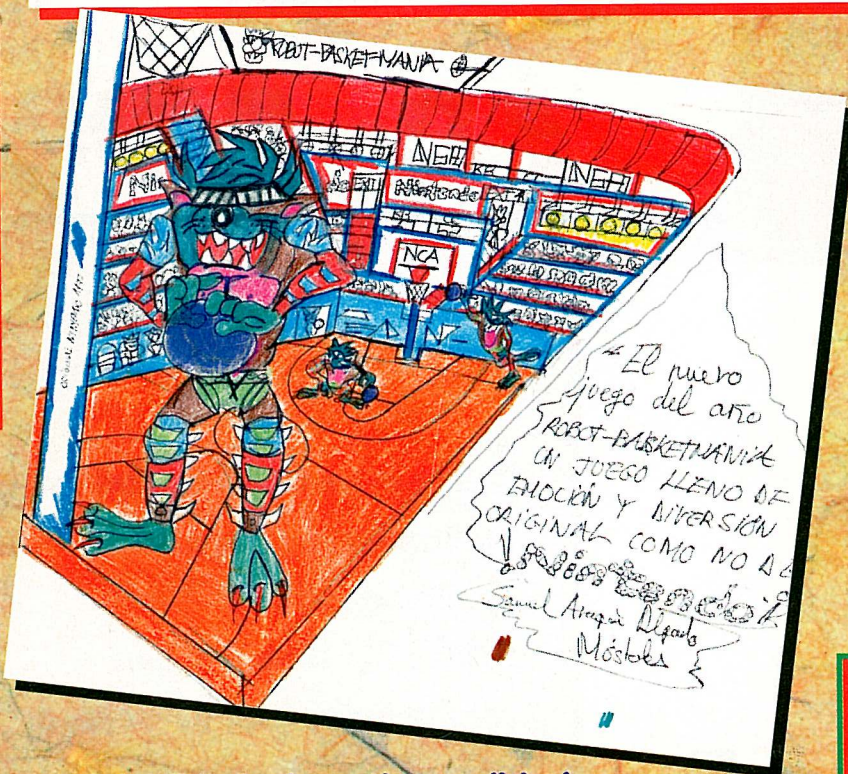 ROBOT-BASKET-MANIA
NBA
NBA
Nin
Nintendo
NCA
"El nuevo
juego del año
ROBOT-BASKETMANIA
UN JUEGO LLENO DE
EMOCIÓN Y DIVERSIÓN
ORIGINAL COMO NO
Samuel
Móstoles